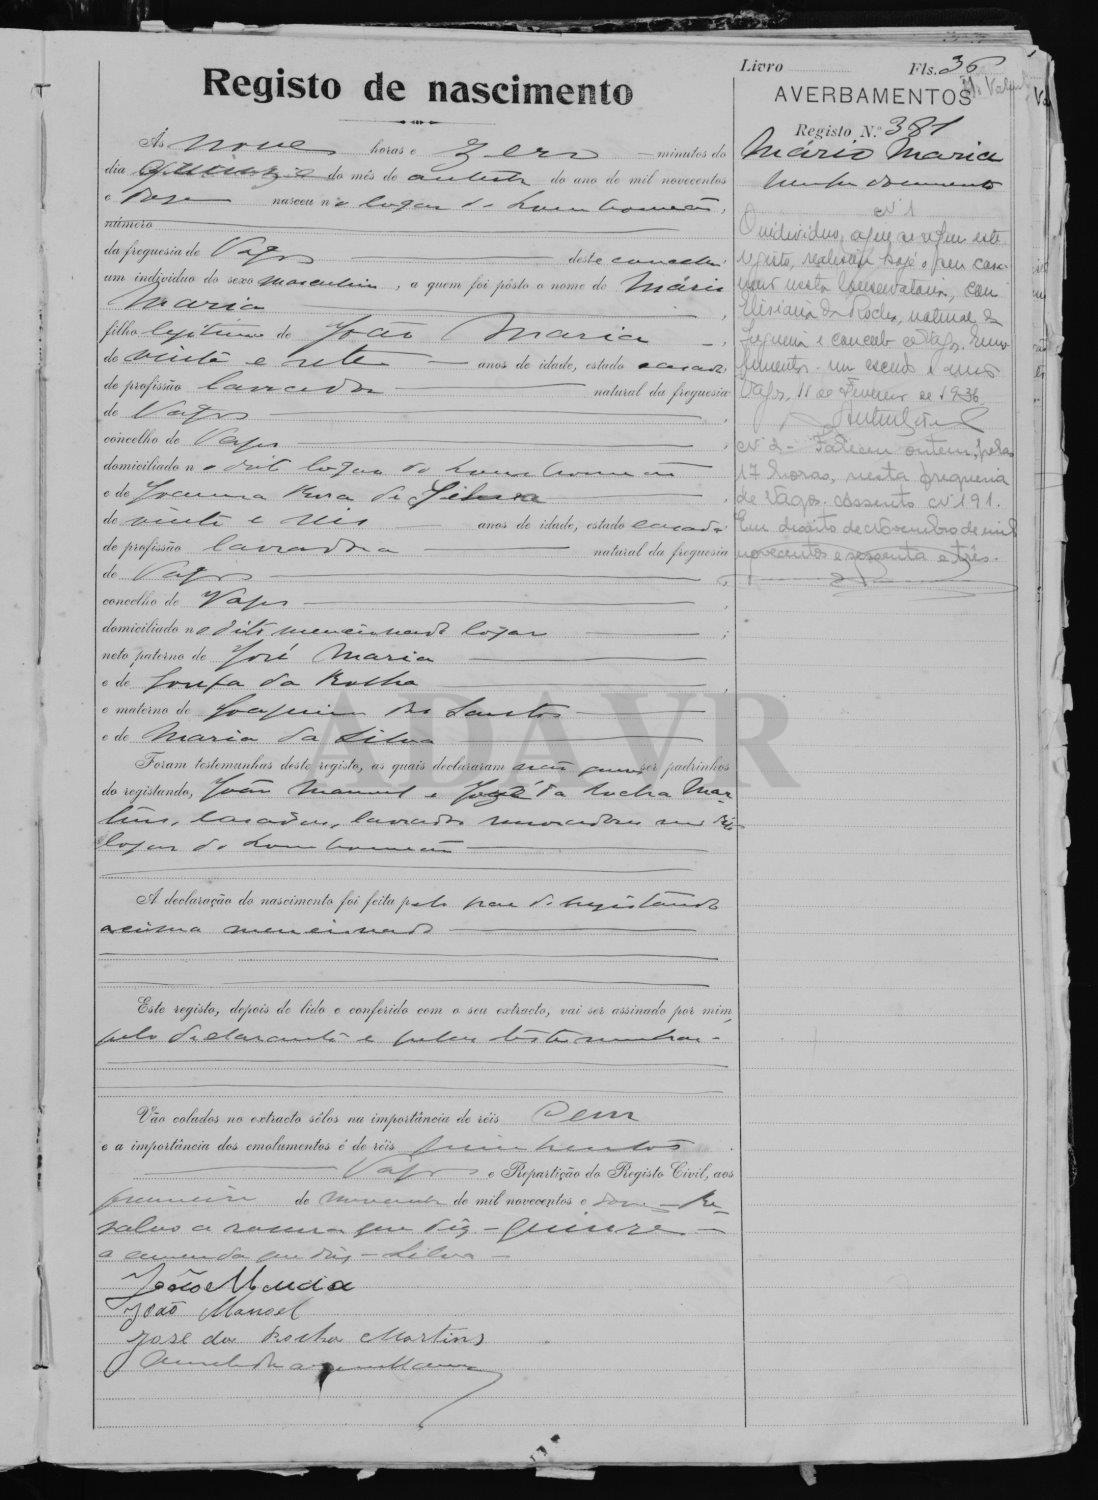 Livro Fls. 36
Registo de nascimento
AVERBAMENTOS
Registo N.º 381
Mário Maria
Às nove horas e zero minutos do
dia quinze do mês de outubro do ano de mil novecentos
e doze nasceu no logar de Lombomeão,
número
da freguesia de Vagos deste concelho
um indivíduo do sexo masculino, a quem foi pôsto o nome de Mário
Maria
filho legitimo de João Maria
de vinte e sete anos de idade, estado casado
de profissão lavrador natural da freguesia
de Vagos
concelho de Vagos
domiciliado no dito logar de Lombomeão
e de Joanna Rosa da Silva
de vinte e seis anos de idade, estado casada
de profissão lavradora natural da freguesia
de Vagos
concelho de Vagos
domiciliado no dito mencionado logar
neto paterno de José Maria
e de Josefa da Rocha
e materno de Joaquim dos Santos
e de Maria da Silva
Foram testemunhas deste registo, as quais declararam não querer ser padrinhos
do registando, João Manuel e José da Rocha Mar-
tins, casados, lavradores moradores no dito
logar de Lombomeão
A declaração do nascimento foi feita pelo pae do registando
acima mencionado
Este registo, depois de lido e conferido com o seu extracto, vai ser assinado por mim,
pelo declarante e pelas testemunhas.
Vão colados no extracto sêlos na importância de réis cem
e a importância dos emolumentos é de réis quinhentos
Vagos e Repartição do Registo Civil, aos
primeiro de novembro de mil novecentos e doze. Re-
salvo a rasura que diz - quinze -
a emenda que diz - Silva -
João Maria
João Manoel
José da Rocha Martins
Nº 1
O individuo a que se refere este
registo, realisou hoje o seu casa-
mento nesta Conservatoria, com
da Rocha, natural da
freguesia e concelho de Vagos. Emo-
lumentos um escudo e
Vagos, 11 de Fevereiro de 1936
Nº 2 - Faleceu ontem, pelas
17 horas, nesta freguesia
de Vagos. Assento Nº 191.
Em dezoito de Novembro de mil
novecentos e sessenta e três.
ADAVR